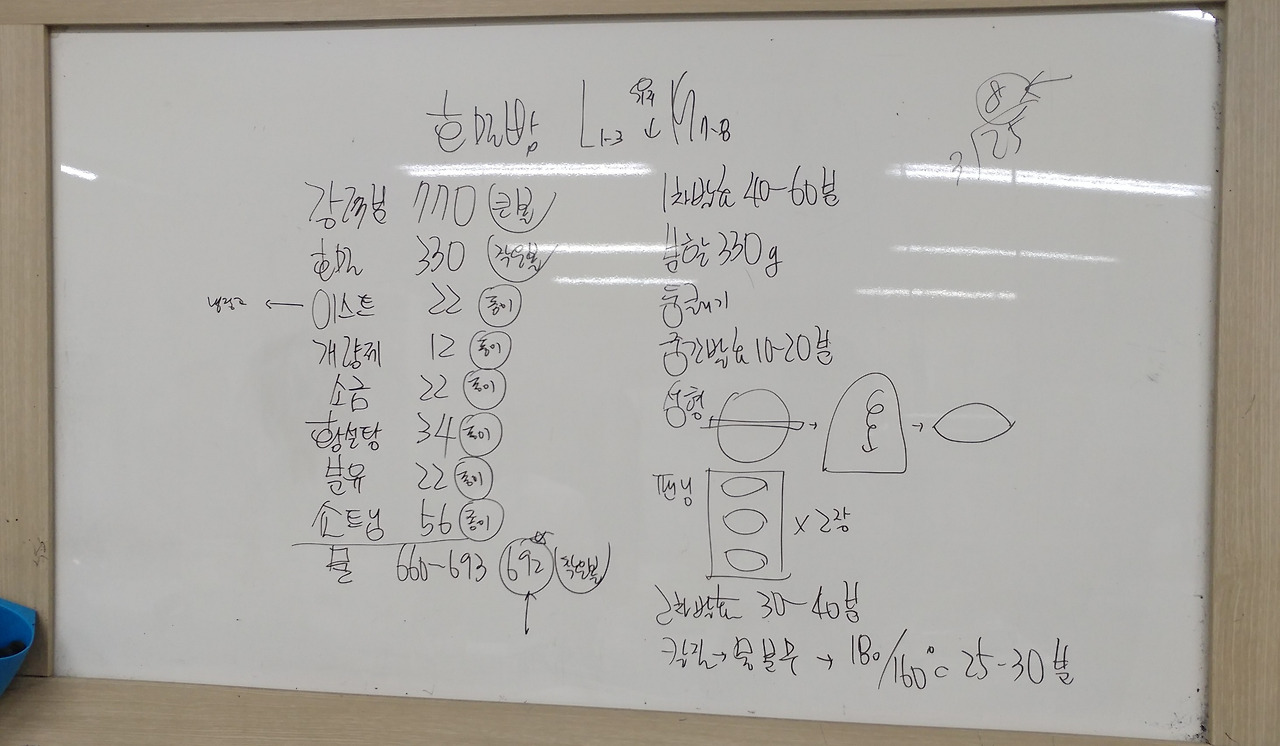 호밀빵 L 1-3 유지 ↓ M 7-8
8
3 25
강력분 770 큰볼
호밀 330 작은볼
냉장고 ← 이스트 22 종이
개량제 12 종이
소금 22 종이
황설탕 34 종이
분유 22 종이
쇼트닝 56 종이
물 660-693 692 작은볼
1차발효 40-60분
분할 330g
둥글리기
중간발효 10-20분
성형 → →
팬닝 x 2장
2차발효 30-40분
칼집→물분무 → 180/160°C 25-30분